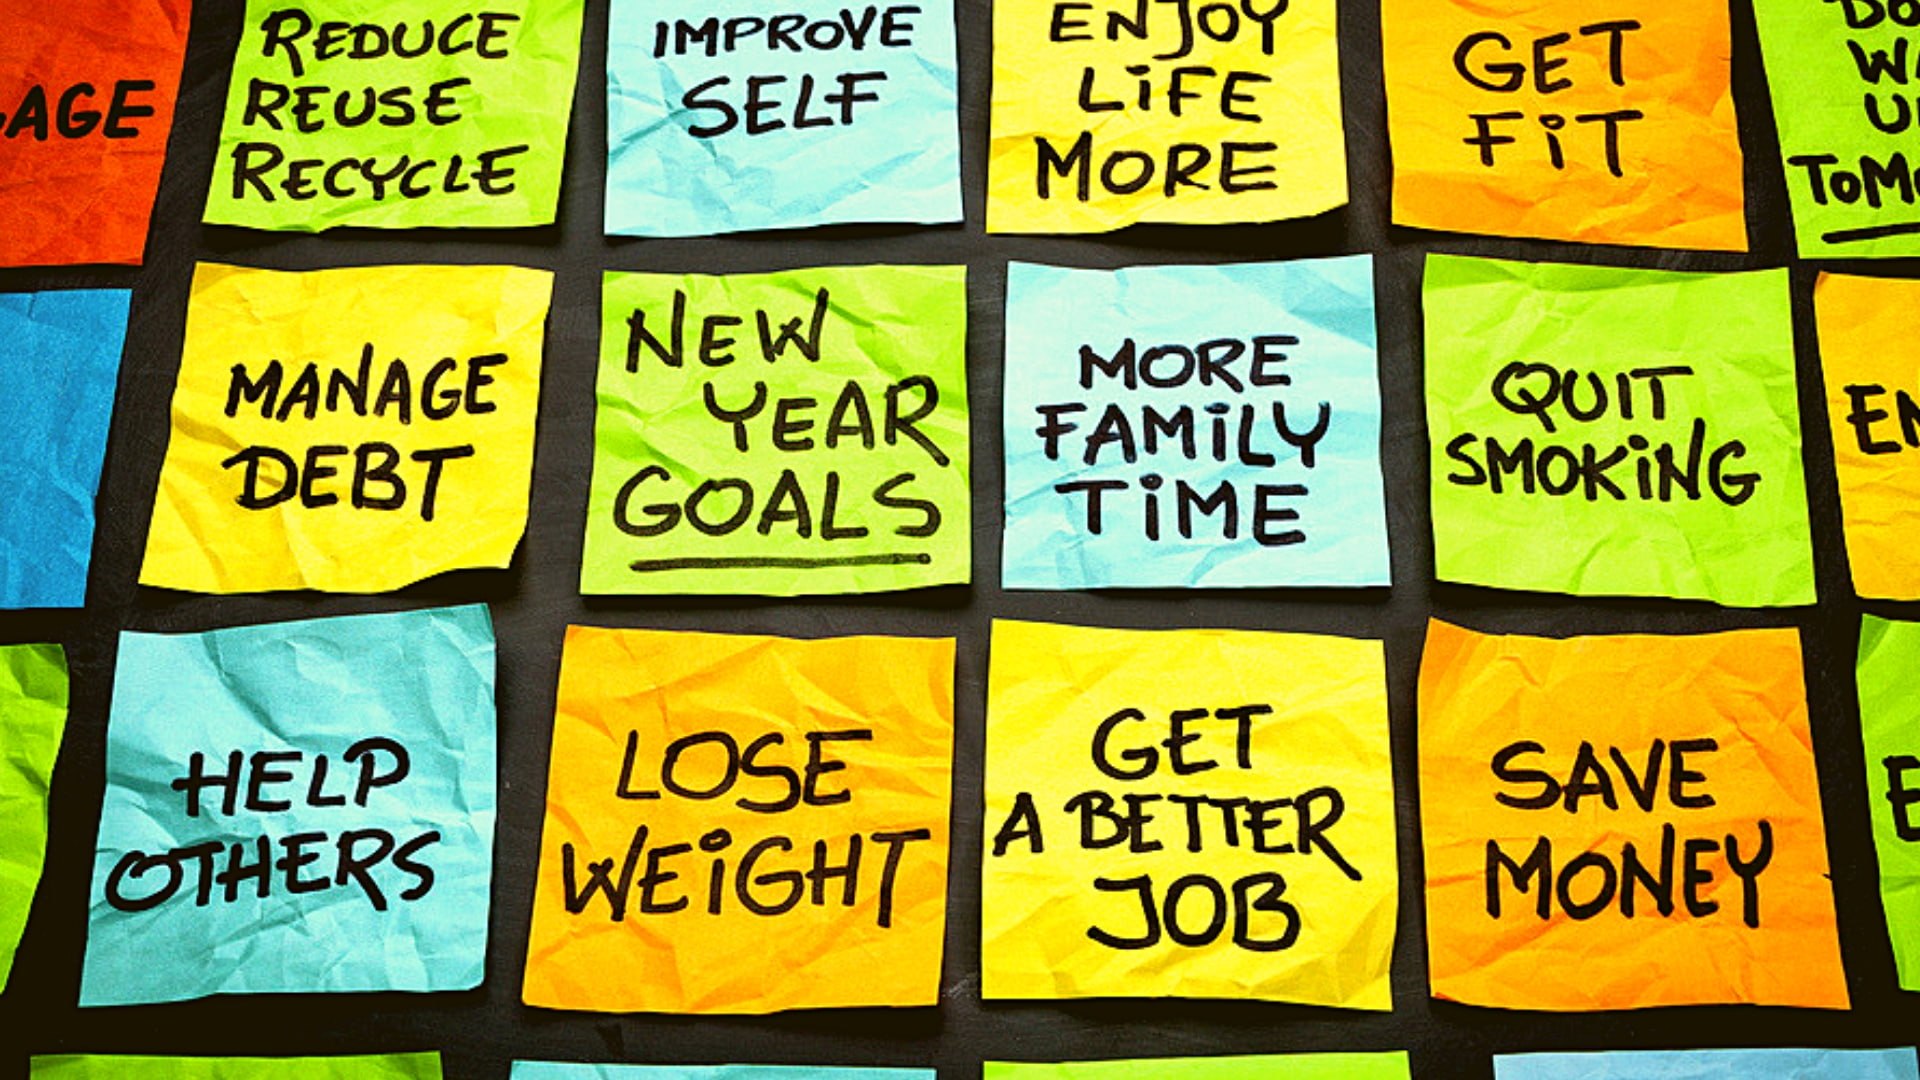 REDUCE
REUSE
RECYCLE
IMPROVE
SELF
ENJOY
LiFE
MORE
GET
FiT
MANAGE
DEBT
NEW
YEAR
GOALS
MORE
FAMiLY
TiME
QUIT
SMOKiNG
HELP
OTHERS
LOSE
WEiGHT
GET
A BETTER
JOB
SAVE
MONEY